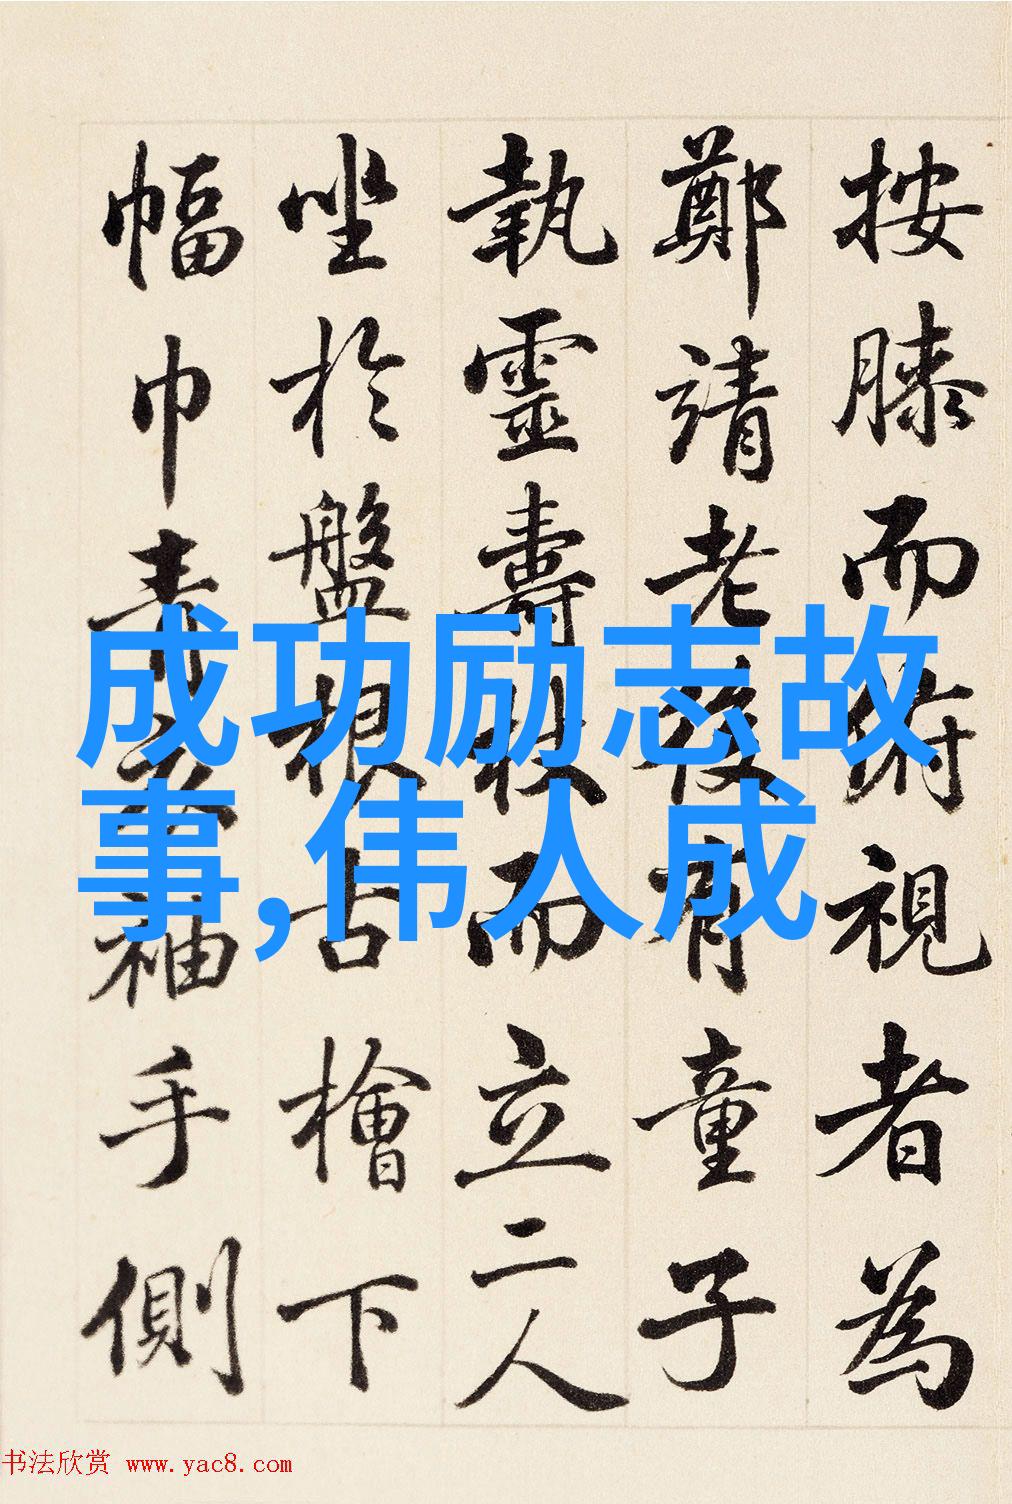 按膝而俯視者為
鄭靖老後有童子
執靈壽杖而立二人
坐於盤根古檜下
幅巾青衣袖手側
成功励志故
事,伟人成
书法欣赏 www.yac8.com